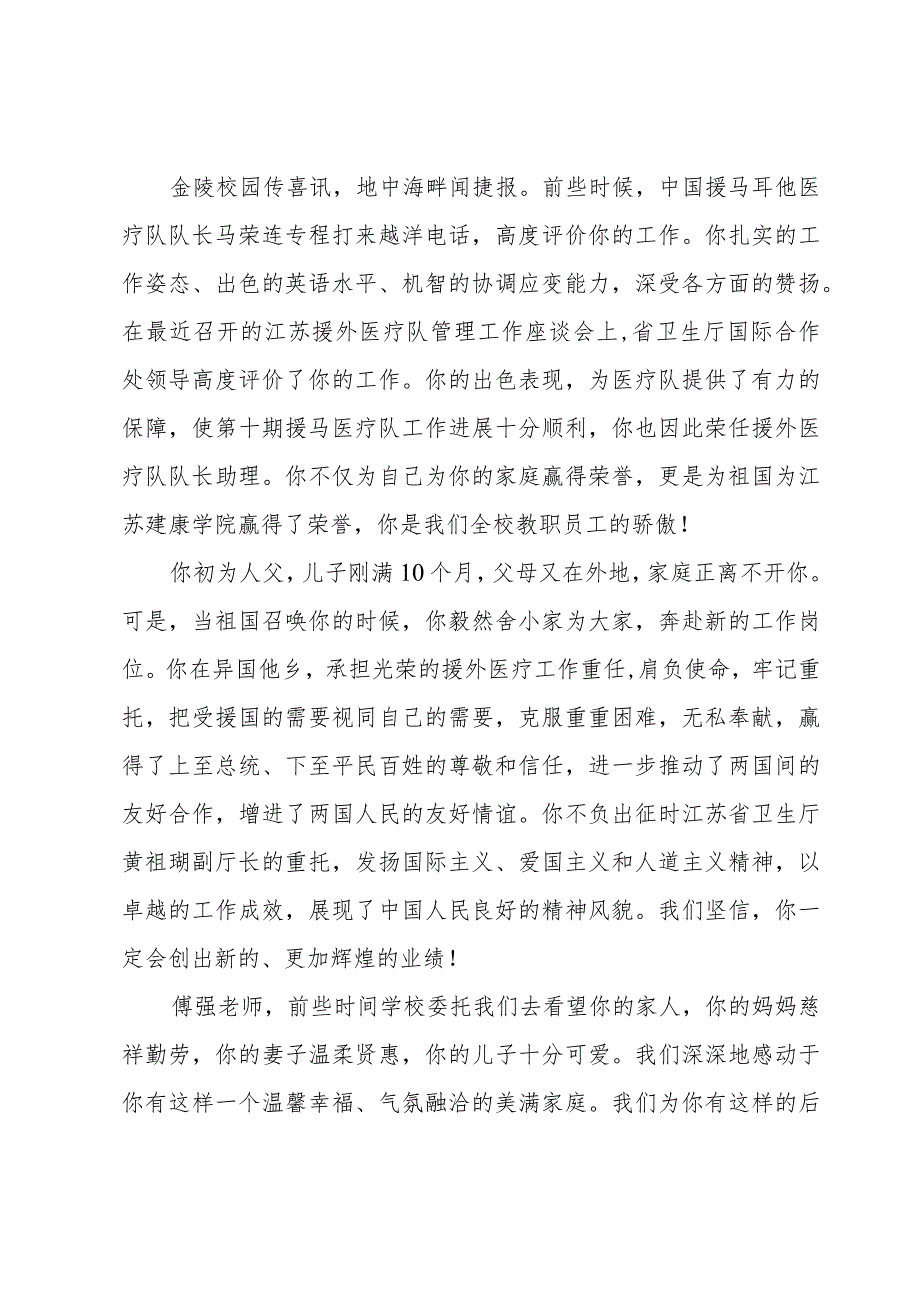 金陵校园传喜讯，地中海畔闻捷报。前些时候，中国援马耳他医
疗队队长马荣连专程打来越洋电话，高度评价你的工作。你扎实的工
作姿态、出色的英语水平、机智的协调应变能力，深受各方面的赞扬。
在最近召开的江苏援外医疗队管理工作座谈会上,省卫生厅国际合作
处领导高度评价了你的工作。你的出色表现，为医疗队提供了有力的
保障，使第十期援马医疗队工作进展十分顺利，你也因此荣任援外医
疗队队长助理。你不仅为自己为你的家庭赢得荣誉，更是为祖国为江
苏建康学院赢得了荣誉，你是我们全校教职员工的骄傲！
你初为人父，儿子刚满10个月，父母又在外地，家庭正离不开你。
可是，当祖国召唤你的时候，你毅然舍小家为大家，奔赴新的工作岗
位。你在异国他乡，承担光荣的援外医疗工作重任,肩负使命，牢记重
托，把受援国的需要视同自己的需要，克服重重困难，无私奉献，赢
得了上至总统、下至平民百姓的尊敬和信任，进一步推动了两国间的
友好合作，增进了两国人民的友好情谊。你不负出征时江苏省卫生厅
黄祖瑚副厅长的重托，发扬国际主义、爱国主义和人道主义精神，以
卓越的工作成效，展现了中国人民良好的精神风貌。我们坚信，你一
定会创出新的、更加辉煌的业绩！
傅强老师，前些时间学校委托我们去看望你的家人，你的妈妈慈
祥勤劳，你的妻子温柔贤惠，你的儿子十分可爱。我们深深地感动于
你有这样一个温馨幸福、气氛融洽的美满家庭。我们为你有这样的后